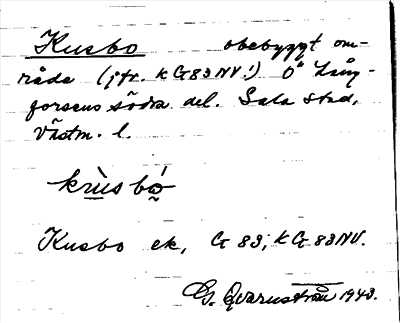 Kusbo obebyggt om-
råde (jfr. k G83NV!) Ö Lång-
forsens södra del. Sala stad,
Västm. l.
krùsbó
Kusbo ek, G 83, k G 83NV.
G. Qvarnström 1943.